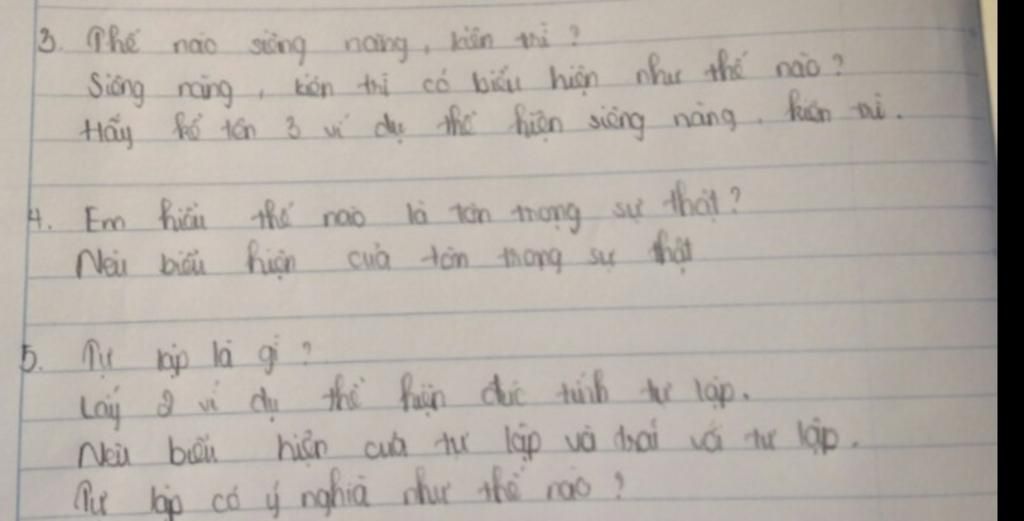 3. Thế nào siêng năng, kiên trì?
Siêng năng, kiên trì có biểu hiện như thế nào?
Hãy kể tên 3 ví dụ thể hiện siêng năng, kiên trì.
4. Em hiểu thế nào là tôn trọng sự thật?
Nêu biểu hiện của tôn trọng sự thật
5. Tự lập là gì?
Lấy 2 ví dụ thể hiện đức tính tự lập.
Nêu biểu hiện của tự lập và trái với tự lập.
Tự lập có ý nghĩa như thế nào?